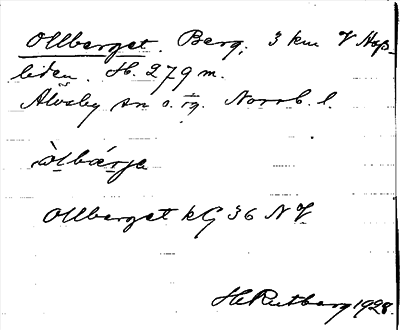 Ollberget. Berg, 3 km V Hap-
liden. H. 279 m.
Älvsby sn o. tg. Norrb. l.
òlbárje
Ollberget kG 36 NV
H Rutberg 1928.